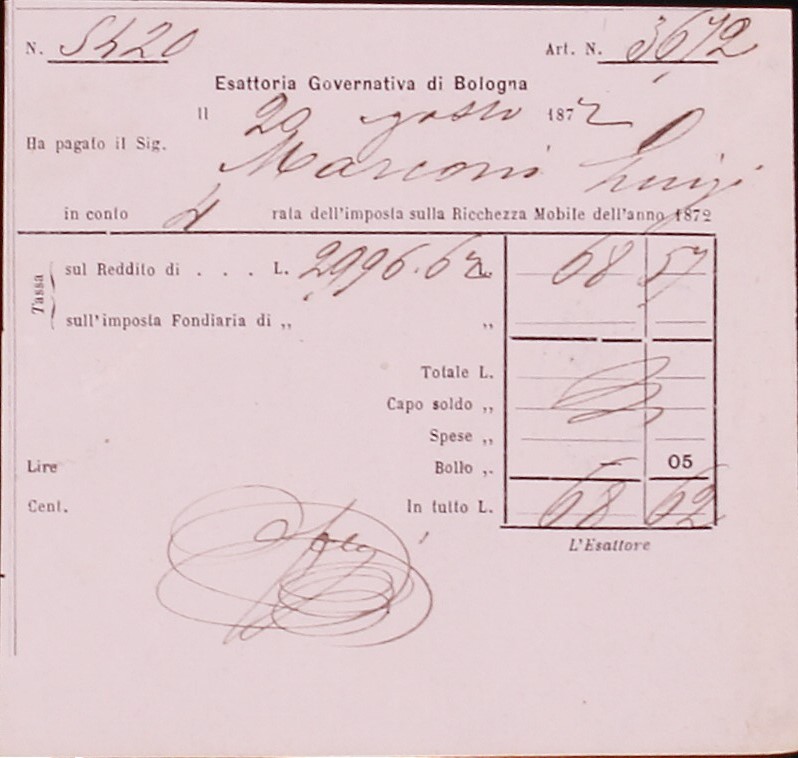 N. 5420 Art. N. 3672
Esattoria Governativa di Bologna
Il 20 Agosto 1872
Ha pagato il Sig. Marconi Luigi
in conto 4 rata dell'imposta sulla Ricchezza Mobile dell'anno 1872
Tassa
sul Reddito di . . . L. 2996.62 L. 68 57
sull'imposta Fondiaria di „ „
Totale L.
Capo soldo „
Spese „
Lire Bollo „. — 05
Cent. In tutto L. 68 62
L'Esattore